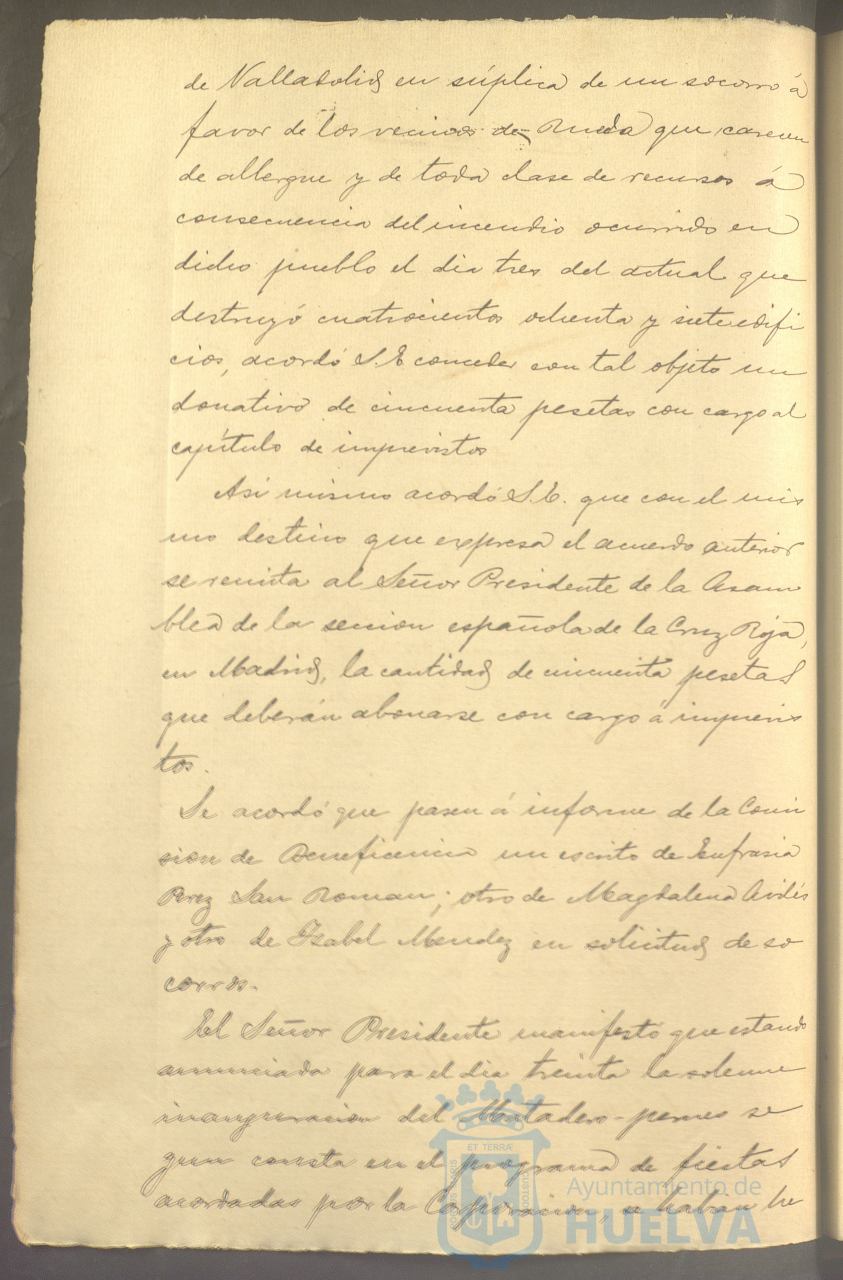 de Valladolid en súplica de un socorro á
favor de los vecinos de Rueda que carecen
de albergue y de toda clase de recursos á
consecuencia del incendio ocurrido en
dicho pueblo el dia tres del actual que
destruyó cuatrocientos ochenta y siete edifi
cios, acordó S.E conceder con tal objeto un
donativo de cincuenta pesetas con cargo al
capítulo de imprevistos
Asi mismo acordó S.E. que con el mis
mo destino que expresa el acuerdo anterior
se remita al Señor Presidente de la Asam
blea de la seccion española de la Cruz Roja,
en Madrid, la cantidad de cincuenta pesetas
que deberán abonarse con cargo á imprevis
tos.
Se acordó que pasen á informe de la Comi
sion de Beneficencia un escrito de Eufrasia
Perez San Roman; otro de Magdalena Avilés
y otro de Isabel Mendez en solicitud de so
corros.
El Señor Presidente manifestó que estando
anunciada para el dia treinta la solemne
inauguracion del Matadero- se
gun consta en el programa de fiestas
acordadas por la Corporacion, se habian he
ET TERRÆ
Ayuntamiento de
HUELVA